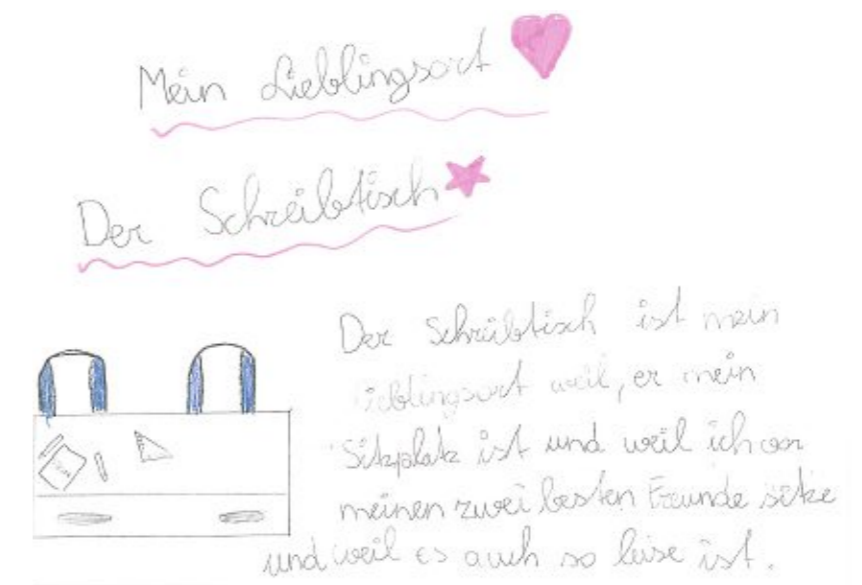 Mein Lieblingsort
Der Schreibtisch
Der Schreibtisch ist mein
Lieblingsort weil, er mein
Sitzplatz ist und weil ich vor
meinen zwei besten Freunde sitze
und weil es auch so leise ist.